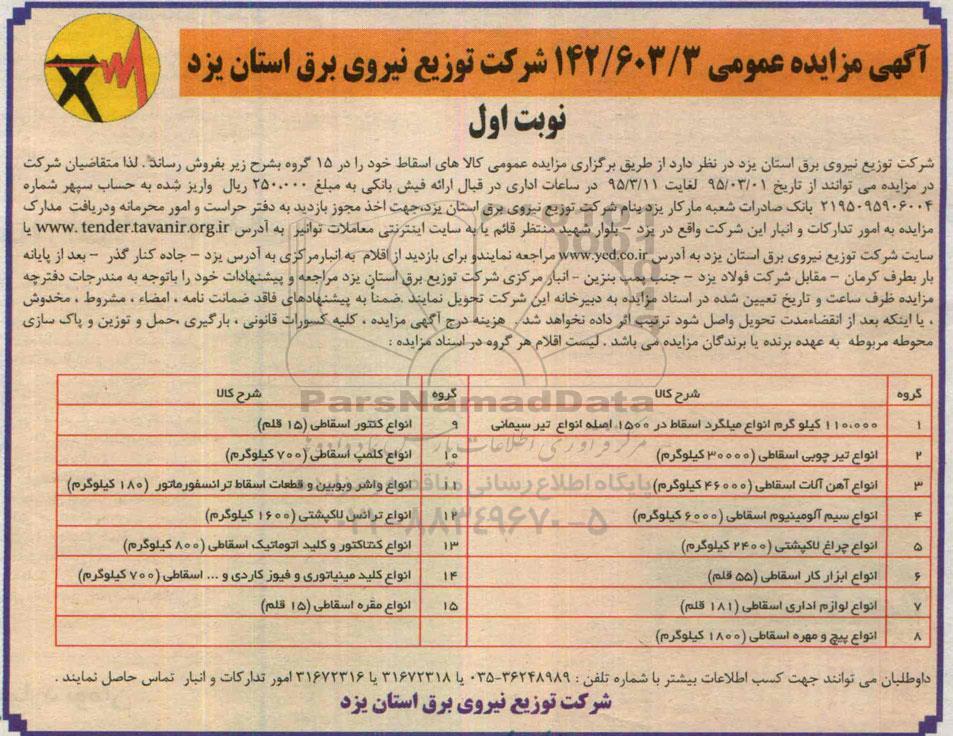 آگهی مزایده عمومی ۱۴۲/۶۰۳/۳ شرکت توزیع نیروی برق استان یزد
نوبت اول
شرکت توزیع نیروی برق استان یزد در نظر دارد از طریق برگزاری مزایده عمومی کالا های اسقاط خود را در ۱۵ گروه بشرح زیر بفروش رساند . لذا متقاضیان شرکت
در مزایده می توانند از تاریخ ۹۵/۰۳/۰۱ لغایت ۹۵/۳/۱۱ در ساعات اداری در قبال ارائه فیش بانکی به مبلغ ۲۵۰.۰۰۰ ریال واریز شده به حساب سپهر شماره
۲۱۹۵۰۹۵۹۰۶۰۰۴ بانک صادرات شعبه مارکار یزد بنام شرکت توزیع نیروی برق استان یزد،جهت اخذ مجوز بازدید به دفتر حراست و امور محرمانه ودریافت مدارک
مزایده به امور تدارکات و انبار این شرکت واقع در یزد – بلوار شهید منتظر قائم یا به سایت اینترنتی معاملات توانیر به آدرس www. tender.tavanir.org.ir یا
سایت شرکت توزیع نیروی برق استان یزد به آدرس www.yed.co.ir مراجعه نمایندو برای بازدید از اقلام به انبارمرکزی به آدرس یزد – جاده کنار گذر – بعد از پایانه
بار بطرف کرمان – مقابل شرکت فولاد یزد – جنب پمپ بنزین – انبار مرکزی شرکت توزیع برق استان یزد مراجعه و پیشنهادات خود را باتوجه به مندرجات دفترچه
مزایده ظرف ساعت و تاریخ تعیین شده در اسناد مزایده به دبیرخانه این شرکت تحویل نمایند .ضمناً به پیشنهادهای فاقد ضمانت نامه ، امضاء ، مشروط ، مخدوش
، یا اینکه بعد از انقضاءمدت تحویل واصل شود ترتیب اثر داده نخواهد شد . هزینه درج آگهی مزایده ، کلیه کسورات قانونی ، بارگیری ،حمل و توزین و پاک سازی
محوطه مربوطه به عهده برنده یا برندگان مزایده می باشد . لیست اقلام هر گروه در اسناد مزایده :
گروه شرح کالا گروه شرح کالا
۱ ۱۱۰.۰۰۰ کیلو گرم انواع میلگرد اسقاط در ۱۵۰۰ اصله انواع تیر سیمانی ۹ انواع کنتور اسقاطی (۱۵ قلم)
۲ انواع تیر چوبی اسقاطی (۳۰۰۰۰ کیلوگرم) ۱۰ انواع کلمپ اسقاطی (۷۰۰ کیلوگرم)
۳ انواع آهن آلات اسقاطی (۴۶۰۰۰ کیلوگرم) ۱۱ انواع واشر وبوبین و قطعات اسقاط ترانسفورماتور (۱۸۰ کیلوگرم)
۴ انواع سیم آلومینیوم اسقاطی (۶۰۰۰ کیلوگرم) ۱۲ انواع ترانس لاکپشتی (۱۶۰۰ کیلوگرم)
۵ انواع چراغ لاکپشتی (۲۴۰۰ کیلوگرم) ۱۳ انواع کنتاکتور و کلید اتوماتیک اسقاطی (۸۰۰ کیلوگرم)
۶ انواع ابزار کار اسقاطی (۵۵ قلم) ۱۴ انواع کلید مینیاتوری و فیوز کاردی و ... اسقاطی (۷۰۰ کیلوگرم)
۷ انواع لوازم اداری اسقاطی (۱۸۱ قلم) ۱۵ انواع مقره اسقاطی (۱۵ قلم)
۸ انواع پیچ و مهره اسقاطی (۱۸۰۰ کیلوگرم)
ParsNamadData
پایگاه اطلاع رسانی مناقصه و مزایده
۰۲۱-۸۸۳۴۹۶۷۰-۵
داوطلبان می توانند جهت کسب اطلاعات بیشتر با شماره تلفن : ۳۶۲۴۸۹۸۹-۰۳۵ یا ۳۱۶۷۲۳۱۸ یا ۳۱۶۷۲۳۱۶ امور تدارکات و انبار تماس حاصل نمایند .
شرکت توزیع نیروی برق استان یزد